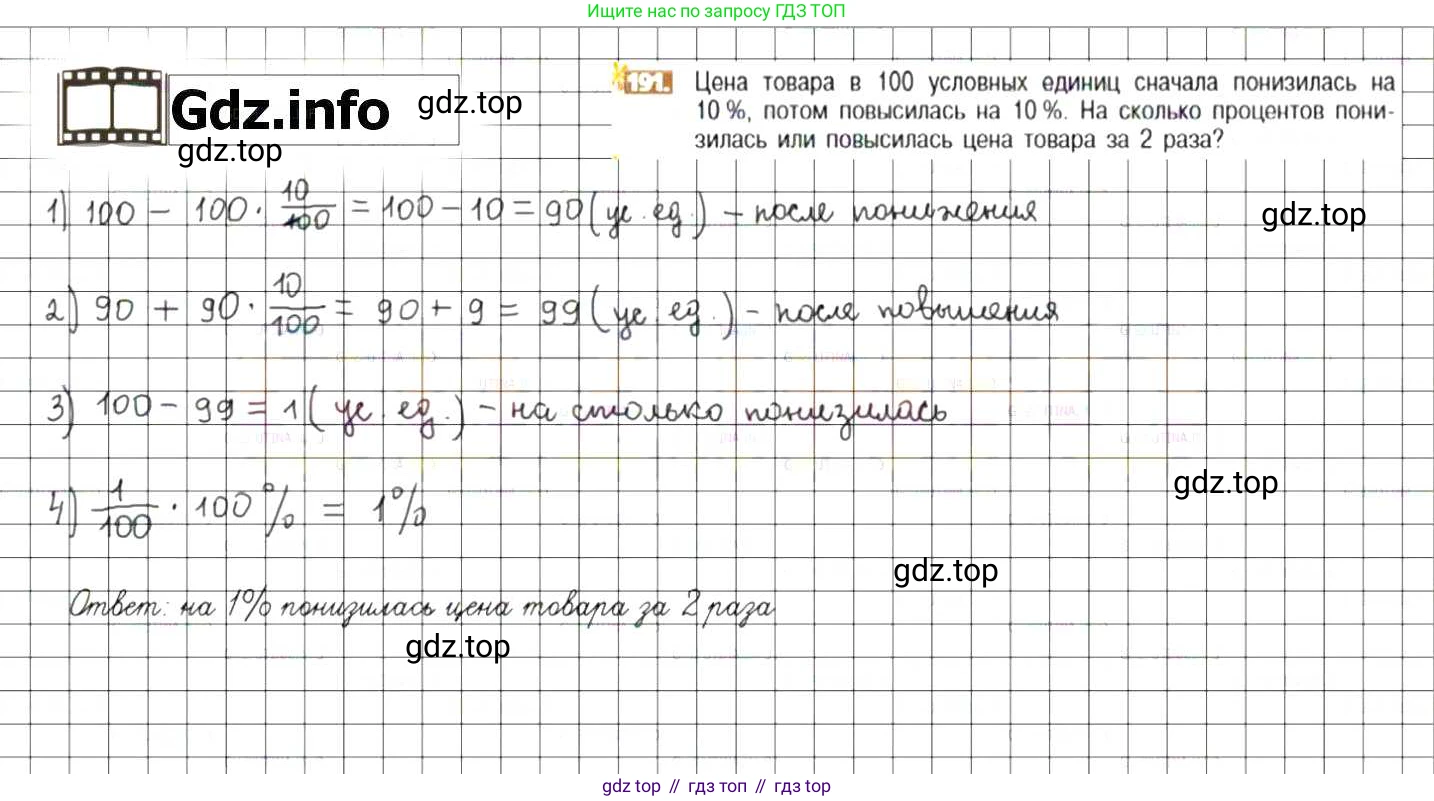 Ищите нас по запросу ГДЗ ТОП
Gdz.info
gdz.top
gdz.top
191. Цена товара в 100 условных единиц сначала понизилась на
10 %, потом повысилась на 10 %. На сколько процентов пони-
зилась или повысилась цена товара за 2 раза?
1) 100 - 100 · 10/100 = 100 - 10 = 90 (ус. ед.) - после понижения
gdz.top
2) 90 + 90 · 10/100 = 90 + 9 = 99 (ус. ед.) - после повышения
3) 100 - 99 = 1 (ус. ед.) - на столько понизилась
gdz.top
4) 1/100 · 100% = 1%
gdz.top
Ответ: на 1% понизилась цена товара за 2 раза
gdz.top
gdz top // гдз топ // гдз top